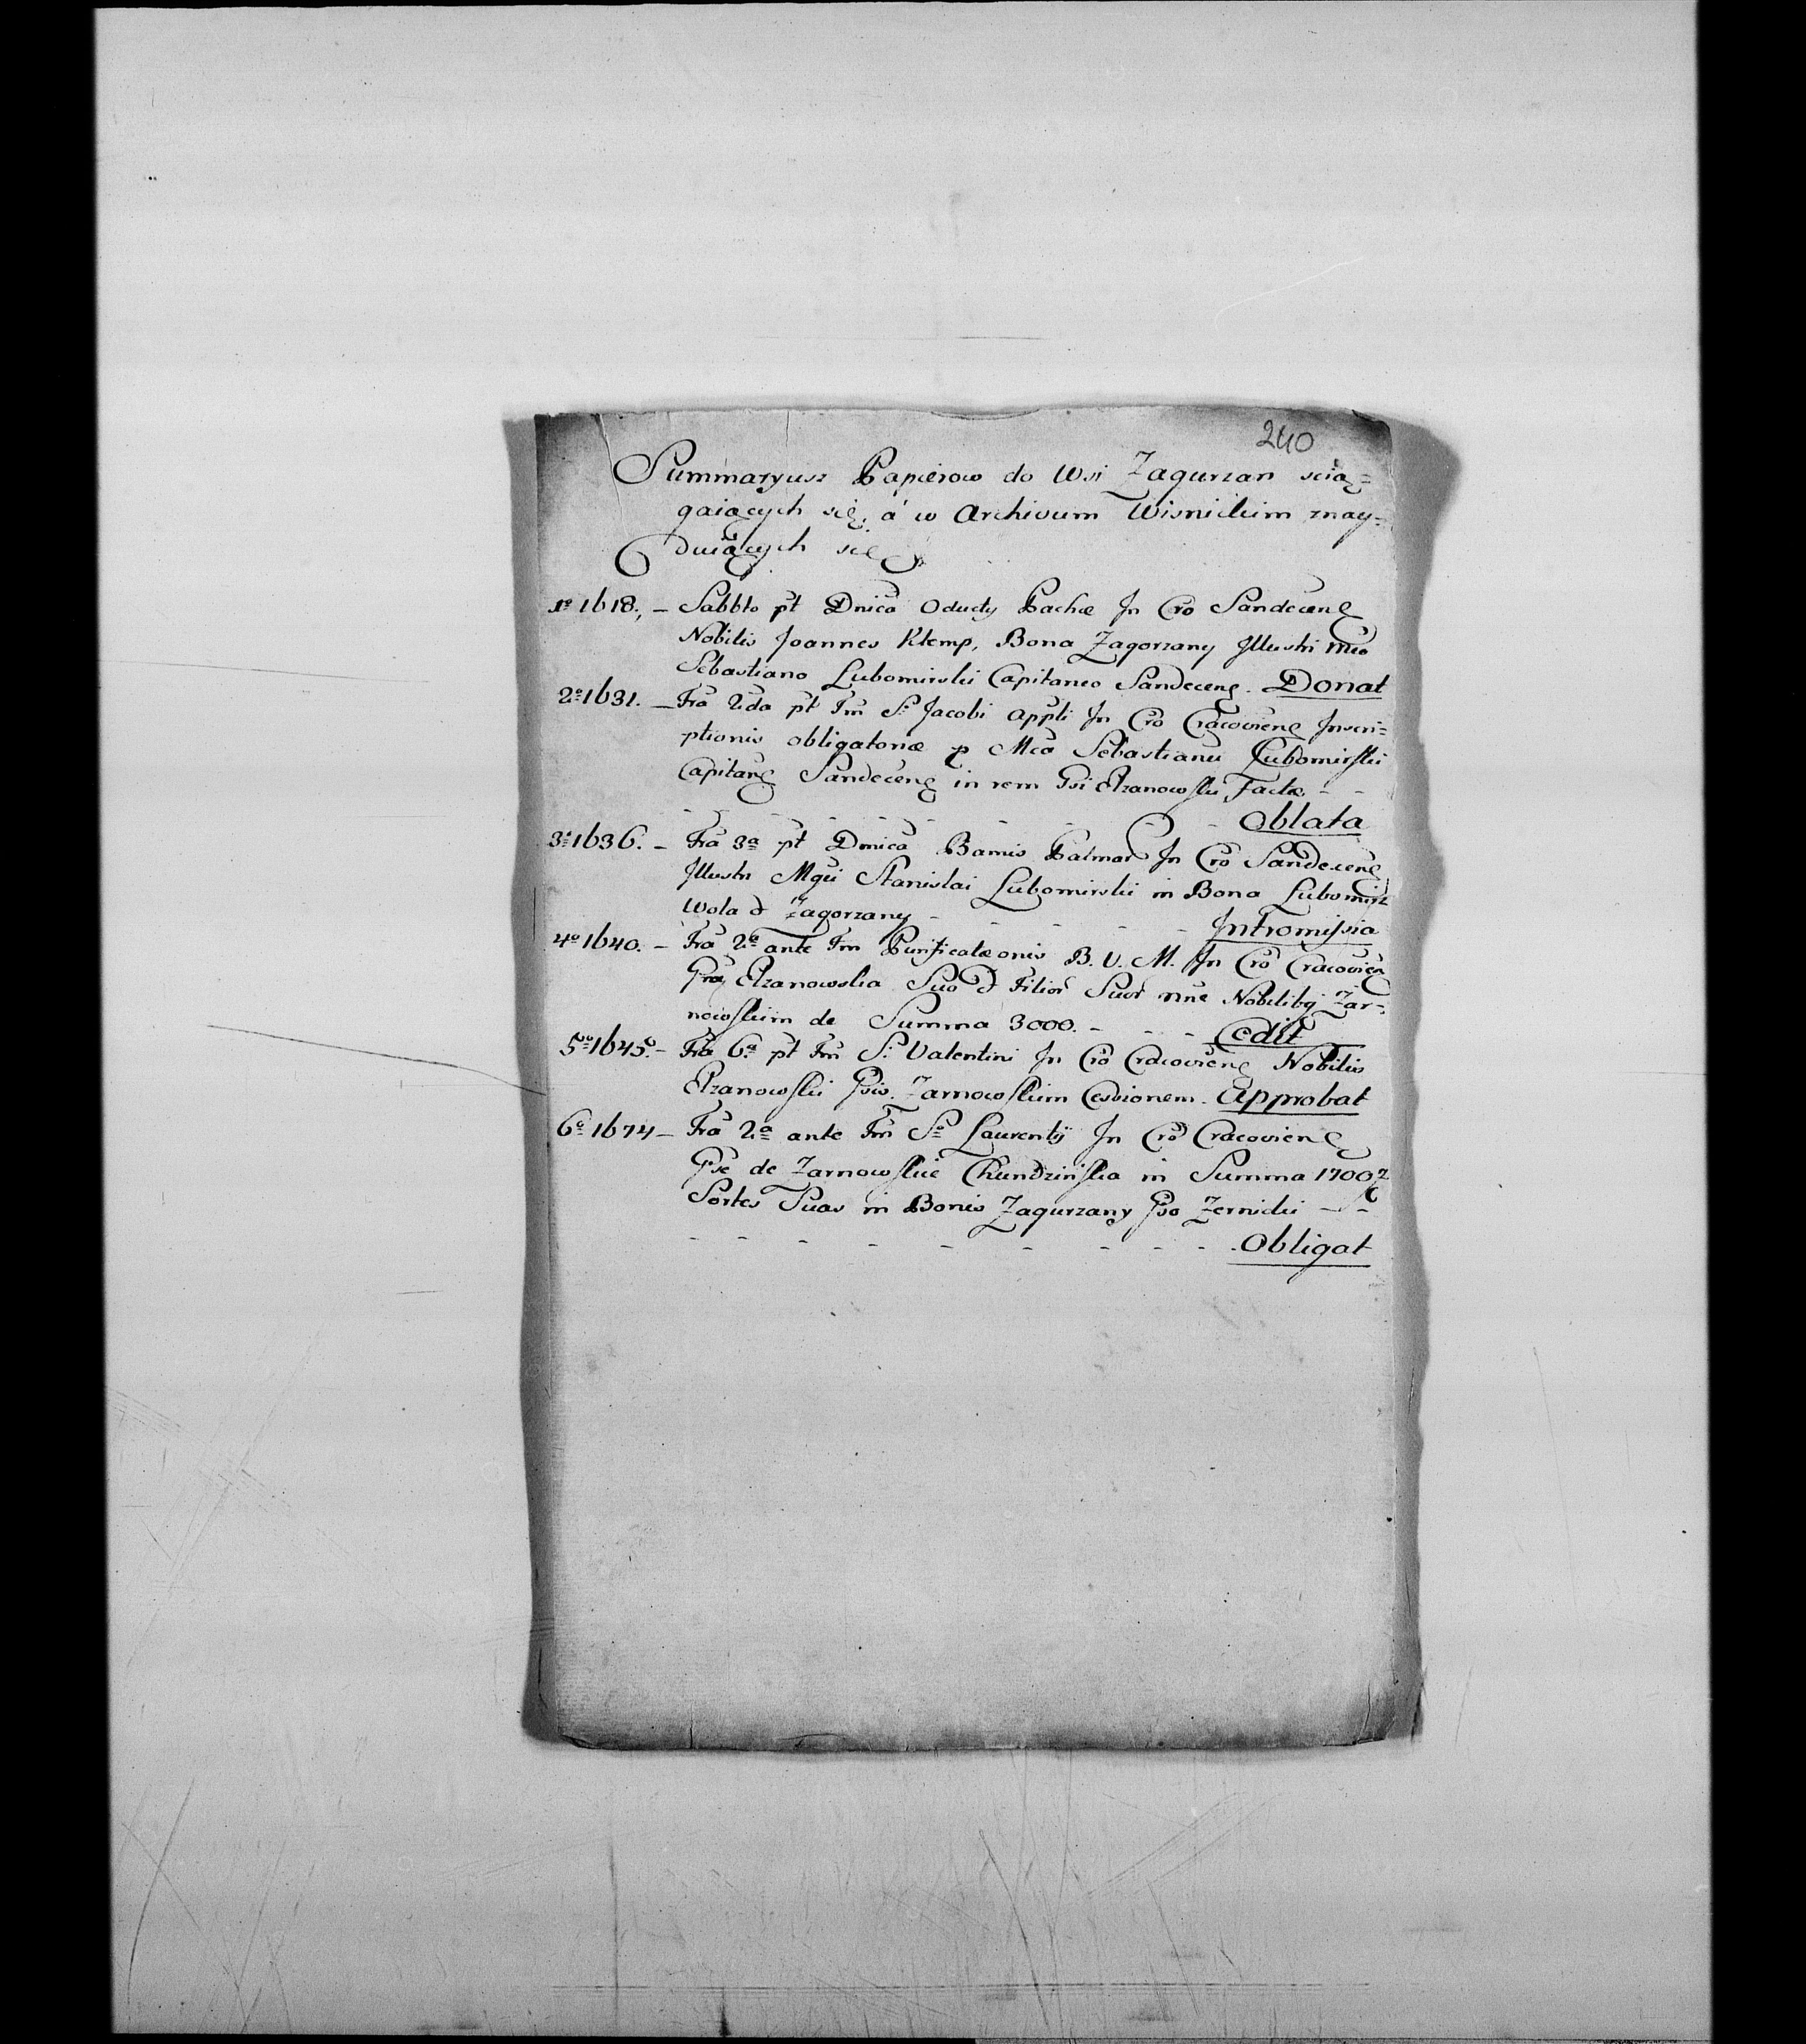 240
Summaryusz Papierow do Wsi Zagurzan scią=
gaiących się, á w Archivum Wisnickim znay=
duiących się
1º 1618. – Sabbto pt Dnicā Oducty Paschæ In Cro Sandecens
Nobilis Joannes Klemp, Bona Zagorzany Illustri Mco
Sebastiano Lubomirski Capitaneo Sandecens. Donat
2º 1631. – Fra 2da pt Fm S: Jacobi Appli In Cro Cracoviens Inscri=
ptionis obligatoriæ p Mcō Sebastianū Lubomirski
Capitanē Sandecens in rem Gsi Elzanowski Factæ. - -
- - - - - - - - - Oblata
3º 1636. – Fra 3ª pt Dnicā Ramis Palmar In Cro Sandecens
Illustri Mgci Stanislai Lubomirski in Bona Lubomirz
Wola & Zagorzany - - - - - Intromissia
4º 1640. – Fra 2ª ante Fm Purificationis B. V. M. In Cro Cracoviens
Gsa Elzanowska Suo & Filior Suor nne Nobilibg Żar=
nowskim de Summa 3000. - - - Cedit
5º 1645. – Fra 6ª pt Fm S: Valentini In Cro Cracoviens Nobilis
Elzanowski Gsis. Zarnowskim Cessionem. Approbat
6º 1674 – Fra 2ª ante Fm Sº Laurentij In Cro Cracoviens
Gse de Zarnowskie Chundzińska in Summa 1700 z
Sortes Suas in Bonis Zagurzany Gso Zernicki – -
- - - - - - - - - Obligat